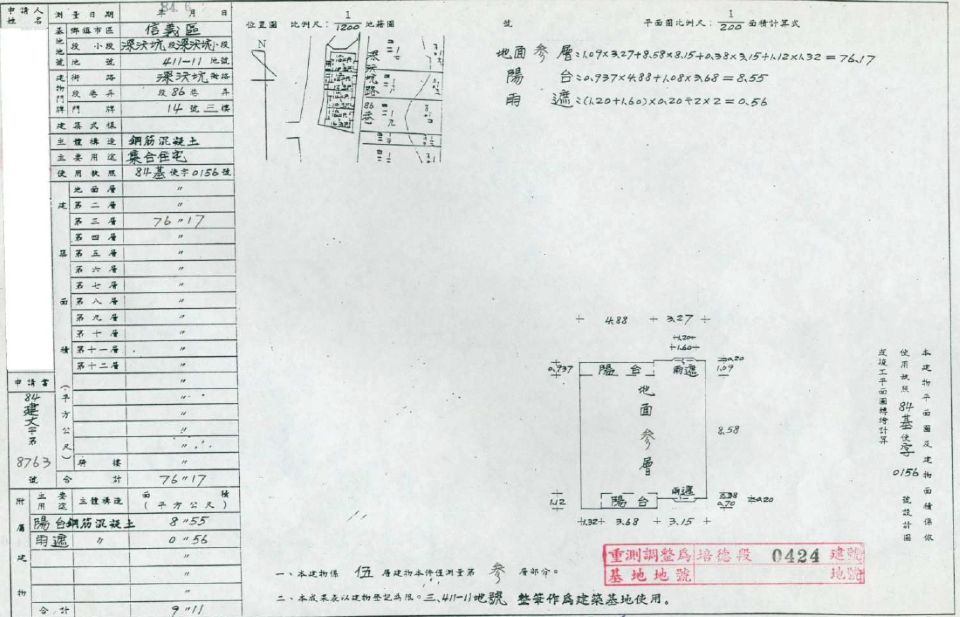 申請人姓名
測量日期 84.6. 年 月 日
基地地號 鄉鎮市區 信義區
段 小段 深澳坑段深澳坑小段
地號 411-11地號
建物門牌 街路 深澳坑街路
段巷弄 段86巷 弄
門牌 14號三樓
建築式樣
主體構造 鋼筋混凝土
主要用途 集合住宅
使用執照 84基使字0156號
建築面積(平方公尺)
地面層 〃
第二層 〃
第三層 76〃17
第四層 〃
第五層 〃
第六層 〃
第七層 〃
第八層 〃
第九層 〃
第十層 〃
第十一層 〃
第十二層 〃
〃
〃
〃
〃
〃
騎樓 〃
合計 76〃17
申請書
84
建丈字第
8763
號
附屬建物
主要用途 主體構造 面積(平方公尺)
陽台 鋼筋混凝土 8〃55
雨遮 〃 0〃56
〃
〃
〃
合計 9〃11
位置圖 比例尺:1/1200 地籍圖
N
深澳坑路
86巷
號 平面圖比例尺:1/200 面積計算式
地面參層:1.09×3.27+8.58×8.15+0.38×3.15+1.12×1.32=76.17
陽台:0.937×4.88+1.08×3.68=8.55
雨遮:(1.20+1.60)×0.20÷2×2=0.56
4.88 3.27
1.20
1.60
0.937 陽台 雨遮 0.20
1.09
地面參層
8.58
1.12 陽台 雨遮 0.38 0.20
0.70
1.32 3.68 3.15
本建物平面圖及建物面積係依
使用執照84基使字0156號設計圖
或竣工平面圖轉繪計算
重測調整為培德段 0424 建號
基地地號 地號
一、本建物係伍層建物本件僅測量第參層部分。
二、本成果表以建物登記為限。三、411-11地號 整筆作為建築基地使用。